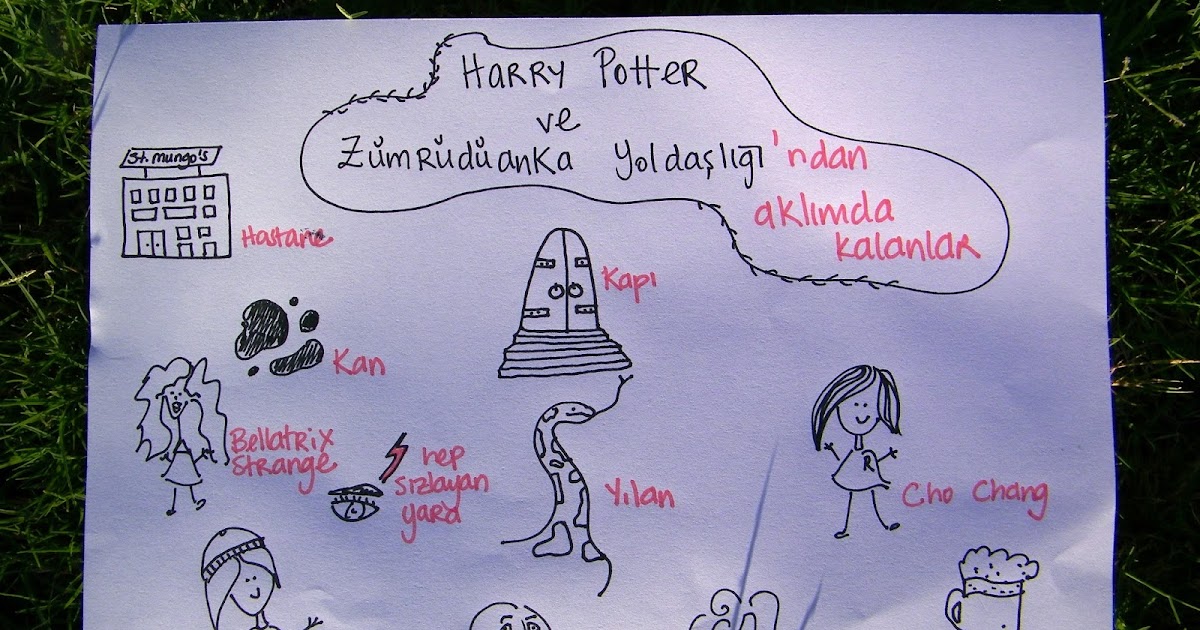 HARRY POTTER
ve
ZÜMRÜDÜANKA YOLDAŞLIĞI'ndan
aklımda
kalanlar
St. Mungo's
Hastane
Kapı
Kan
Bellatrix
Strange
hep
sızlayan
yara
Yılan
R
Cho Chang